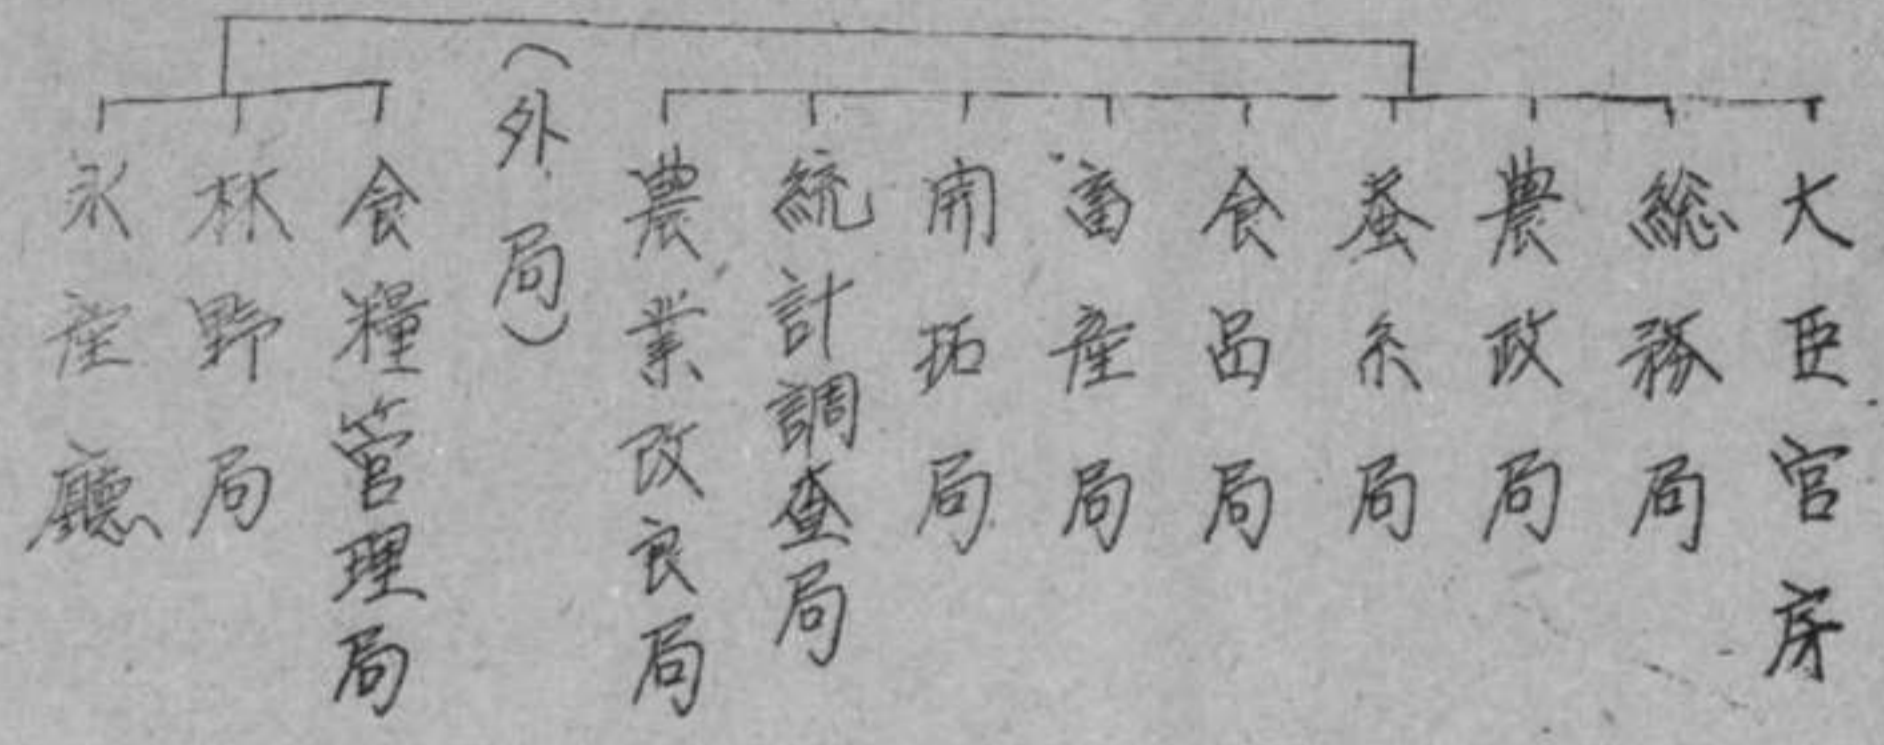 大臣官房
総務局
農政局
蚕糸局
食品局
畜産局
開拓局
統計調査局
農業改良局
(外局)
食糧管理局
林野局
水産廳